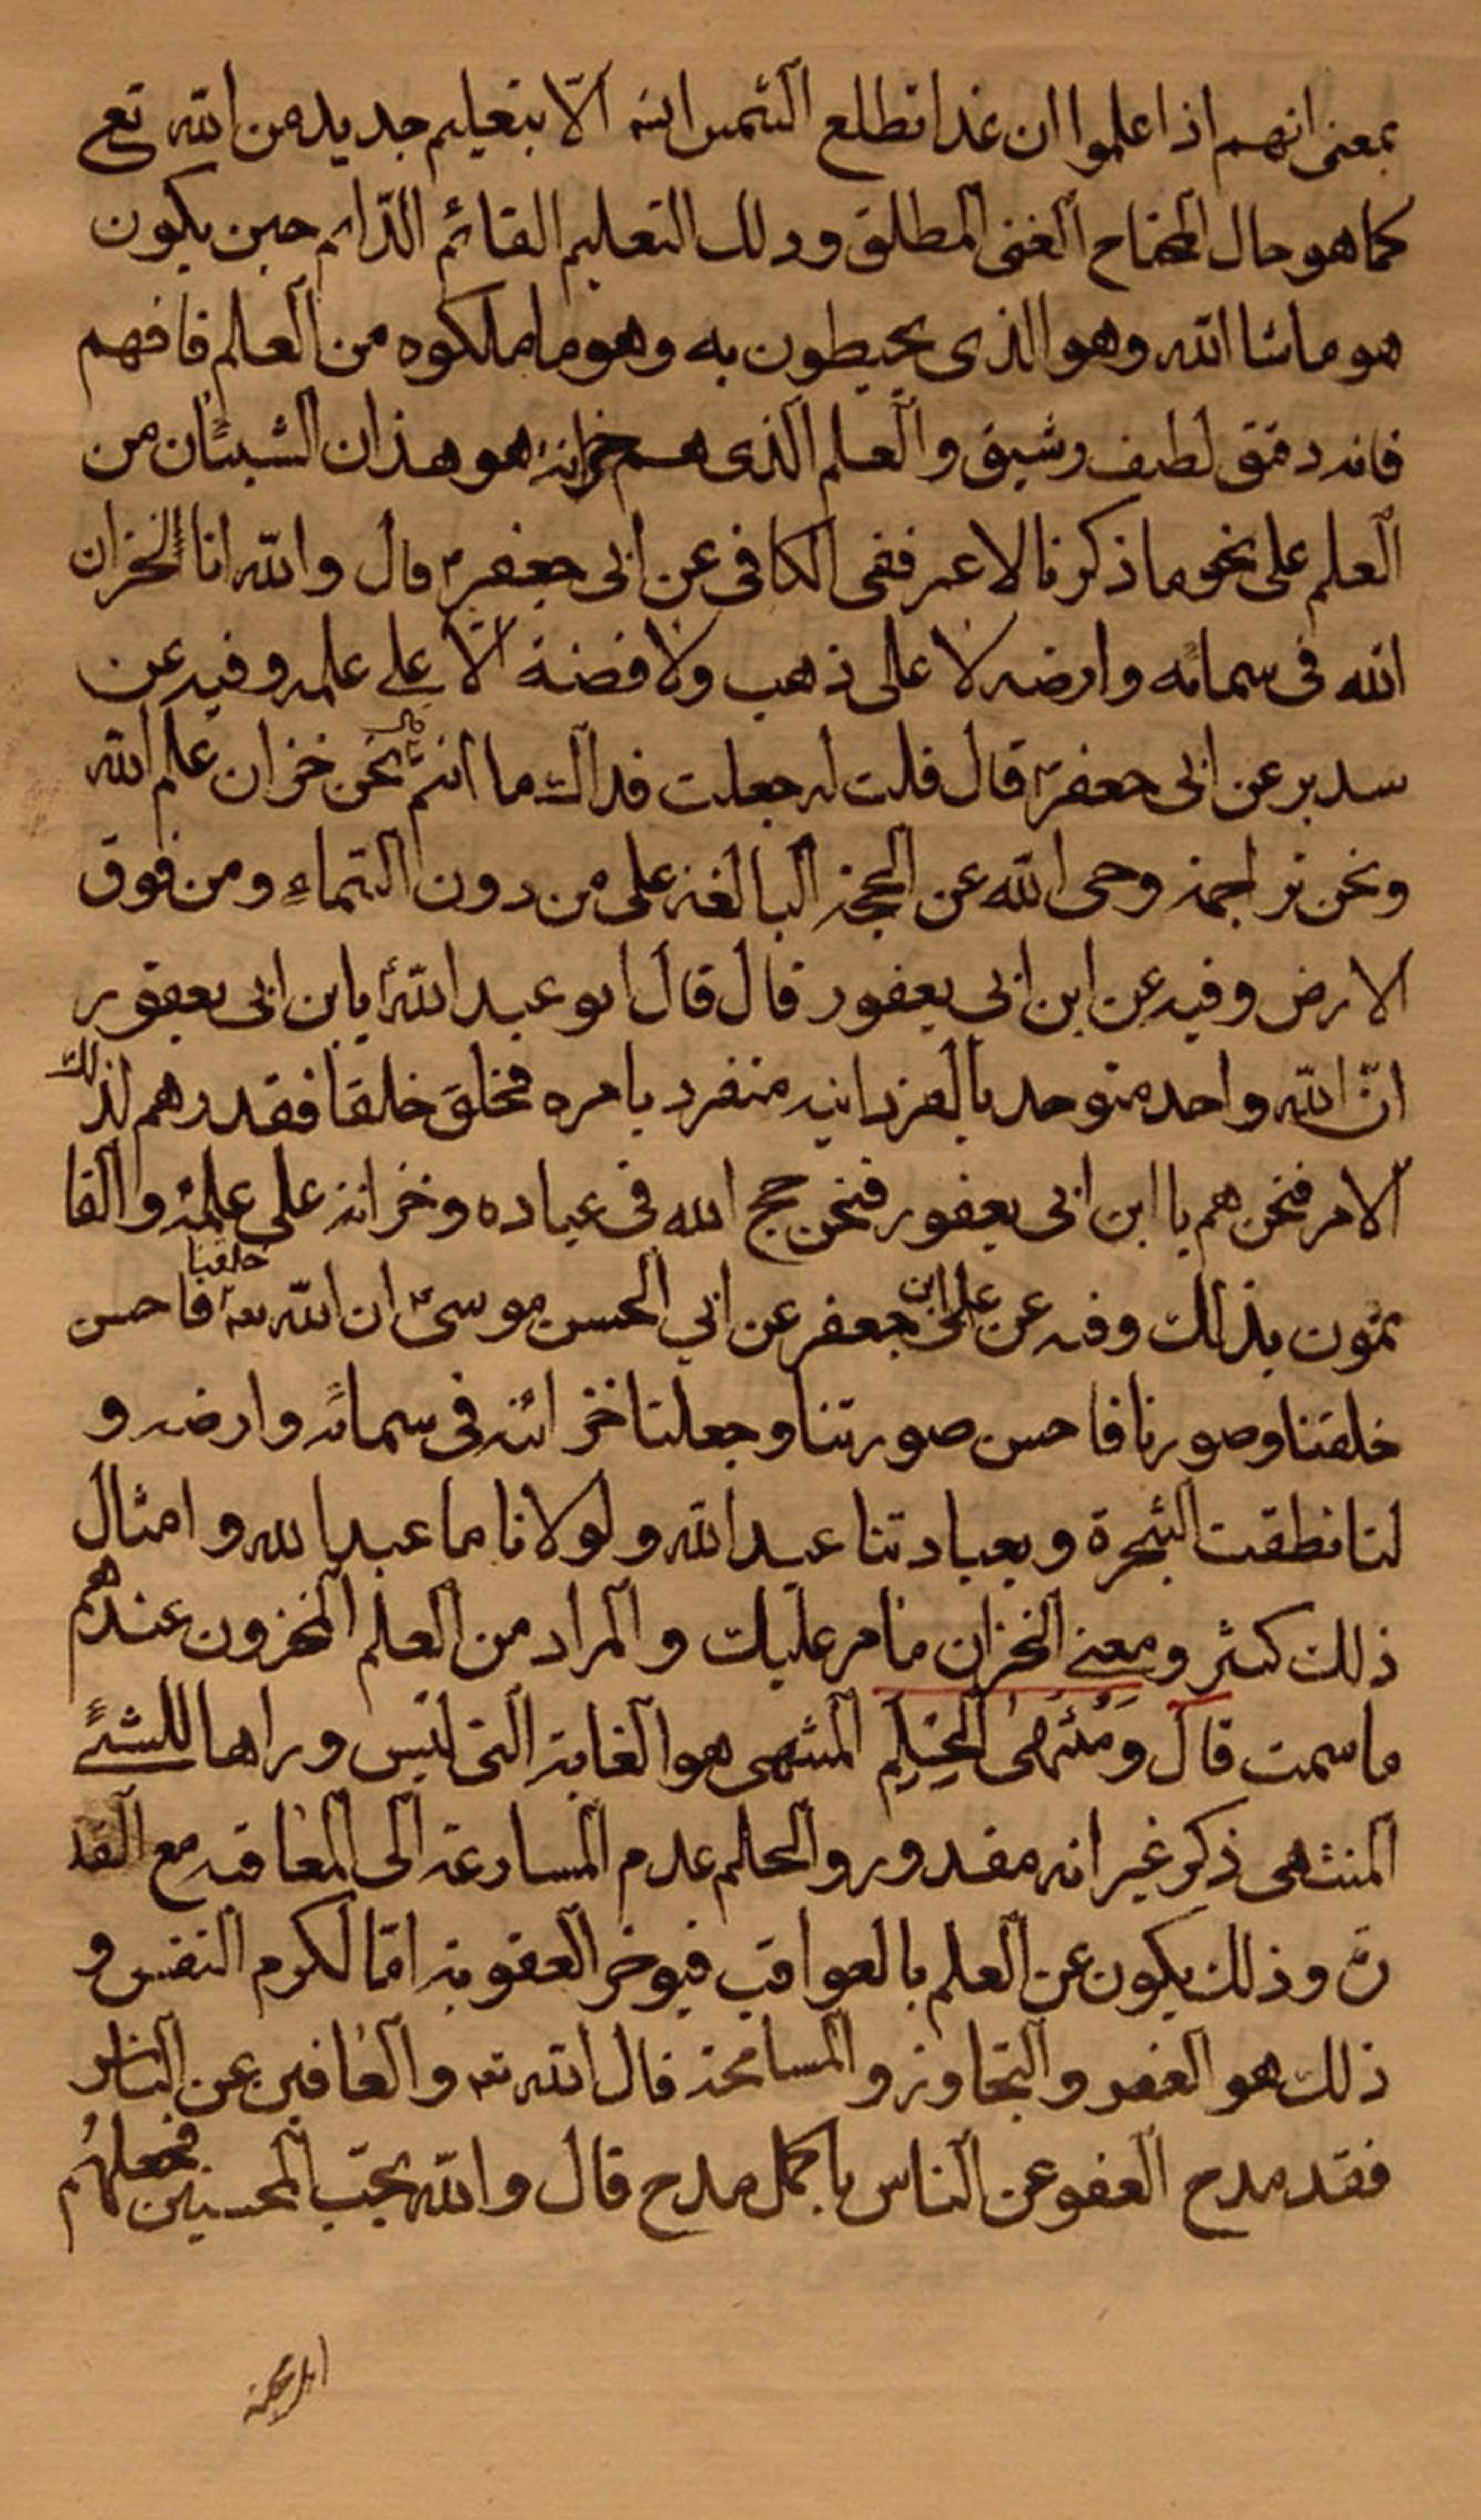 بمعنى انهم اذا علموا ان غدا تطلع الشمس انه الّا بتعليم جديد من الله تع
كما هو حال المحتاح الغنى المطلق وذلك التعليم القائم الدّائم حين يكون
هو ما شا الله وهو الذى يحيطون به وهو ما ملكوه من العلم فافهم
فانه دقيق لطيف رشيق والعلم الذى هم خزانه هو هذان الشيئان من
العلم على نحو ما ذكرنا لا غير ففى الكافى عن ابى جعفر ع قال والله انا لخزان
الله فى سمائه وارضه لا على ذهب ولا فضة الّا على علمه وفيه عن
سدير عن ابى جعفر ع قال قلت له جعلت فداك ما انتم قال نحن خزان علم الله
ونحن تراجمة وحى الله عن الحجة البالغة على من دون السّماء ومن فوق
الارض وفيه عن ابن ابى يعفور قال قال ابو عبد الله ع يا بن ابى يعقور
انّ الله واحد متوحد بالفردانيه منفرد بامره فخلق خلقا فقدرهم لذلك
الامر فنحن هم يا ابن ابى يعفور فنحن حجج الله فى عباده وخزانه على علمه والقا
ئمون بذلك وفيه عن على ابن جعفر عن ابي الحسن موسى ع ان الله تعا خلقنا فاحسن
خلقنا وصورنا فاحسن صورتنا وجعلنا خزائنه فى سمائه وارضه و
لنا نطقت الشجرة وبعبادتنا عبد الله ولولانا ما عبد الله وامثال
ذلك كثير ومعنى الخزان ما مر عليك والمراد من العلم المخزون عندهم
ما سمت قال وَمُنْتَهَى الْحِلِم المنتهى هو الغاية التى ليس وراها للشئ
المنتهى ذكر غير انه مقدور والحلم عدم المسارعة الى المعاقبه مع القد
رة وذلك يكون عن العلم بالعواقب فيوخر العقوبة امّا لكرم النفس و
ذلك هو العفو والتجاوز والمسامحة قال الله تعه والعافين عن الناس
فقد مدح العفو عن الناس باكمل مدح قال والله يحبّ المحسنين فجعلهم